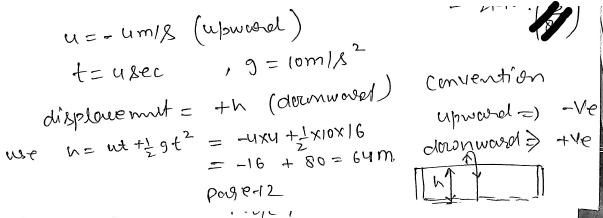 u = - 4m/s (upward)
t = 4 sec , g = 10m/s²
displacement = +h (downward)
use h = ut + ½ gt² = -4x4 + ½ x10x16
= -16 + 80 = 64m.
Page-12
Convention
upward => -Ve
downward => +Ve
h